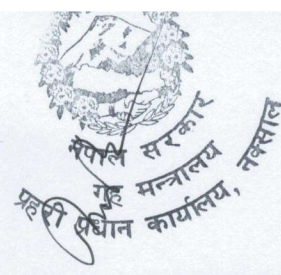 नेपाल सरकार
गृह मन्त्रालय
प्रहरी प्रधान कार्यालय, नक्साल